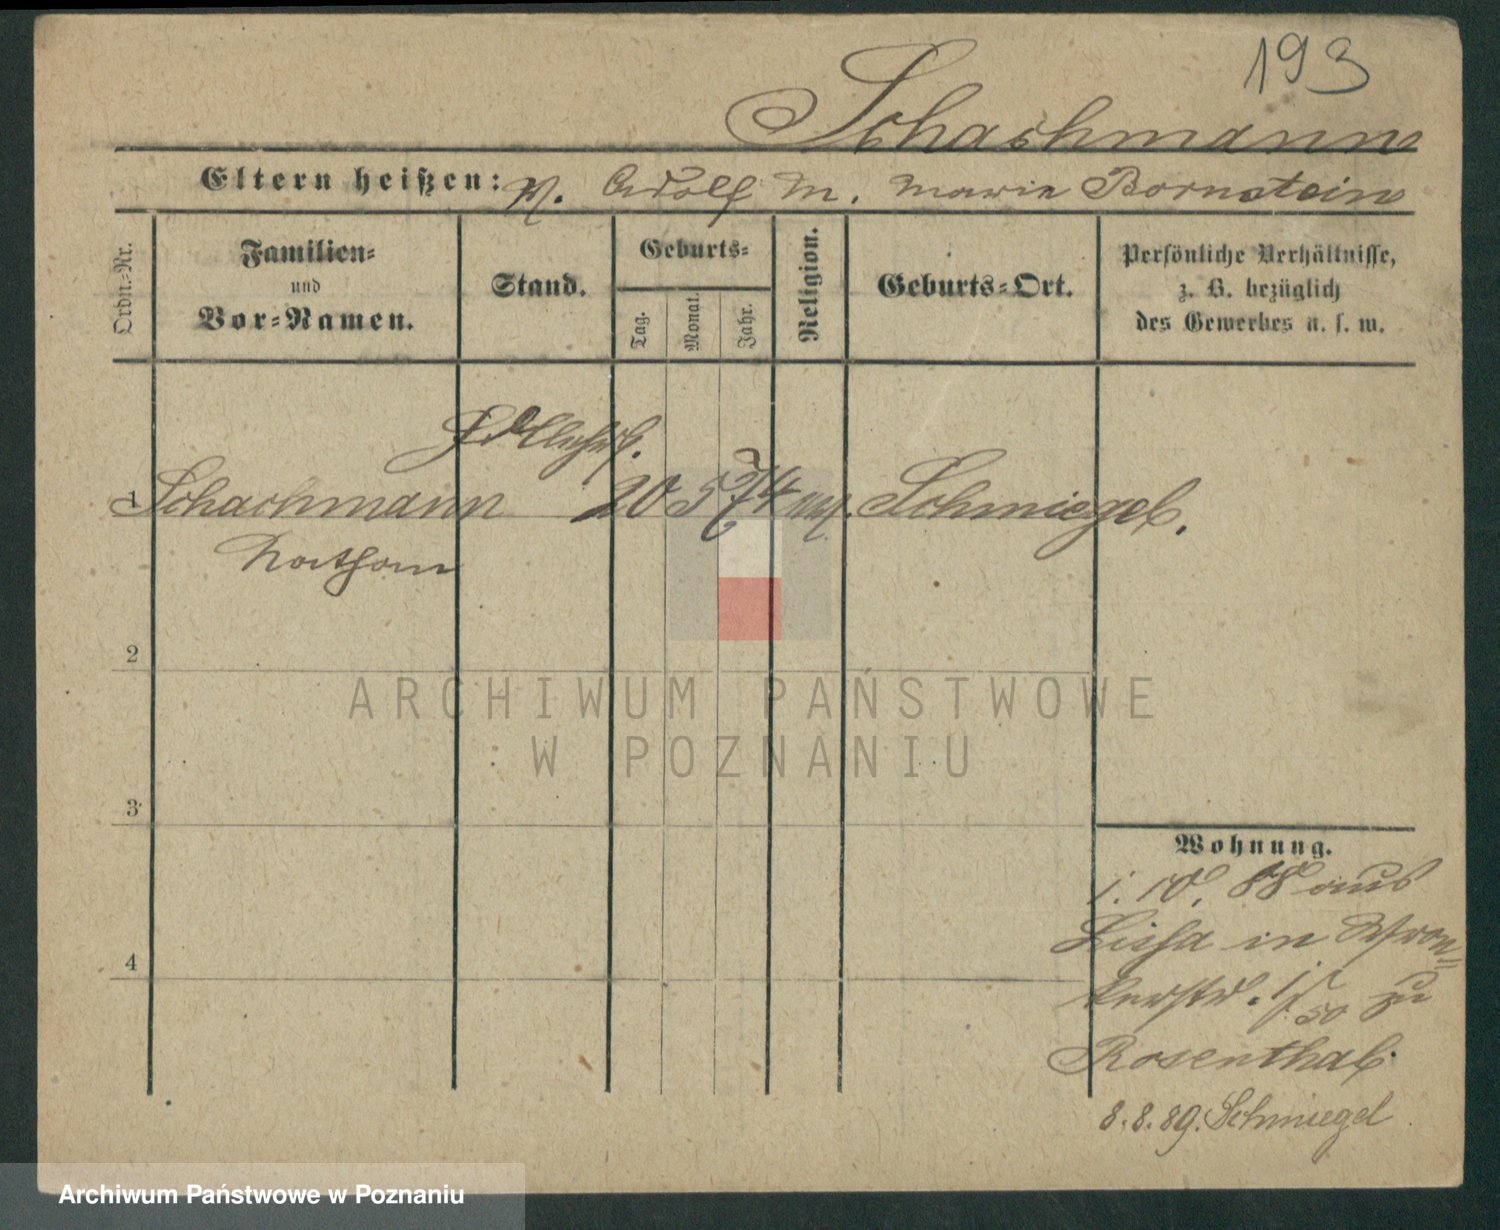 193
Schachmann
Eltern heißen: V. Adolf M. Marie Bornstein
Ordn.-Nr.
Familien-
und
Vor-Namen.
Stand.
Geburts-
Tag.
Monat.
Jahr.
Religion.
Geburts-Ort.
Persönliche Verhältnisse,
z. B. bezüglich
des Gewerbes u. s. w.
1 Schachmann 20 5 74 mos. Schmiegel.
Nathan
2
3
4
Wohnung.
1. 10. 88 aus
Lissa in Wron-
kerstr. zu
Rosenthal.
8. 8. 89. Schmiegel
ARCHIWUM PAŃSTWOWE
W POZNANIU
Archiwum Państwowe w Poznaniu